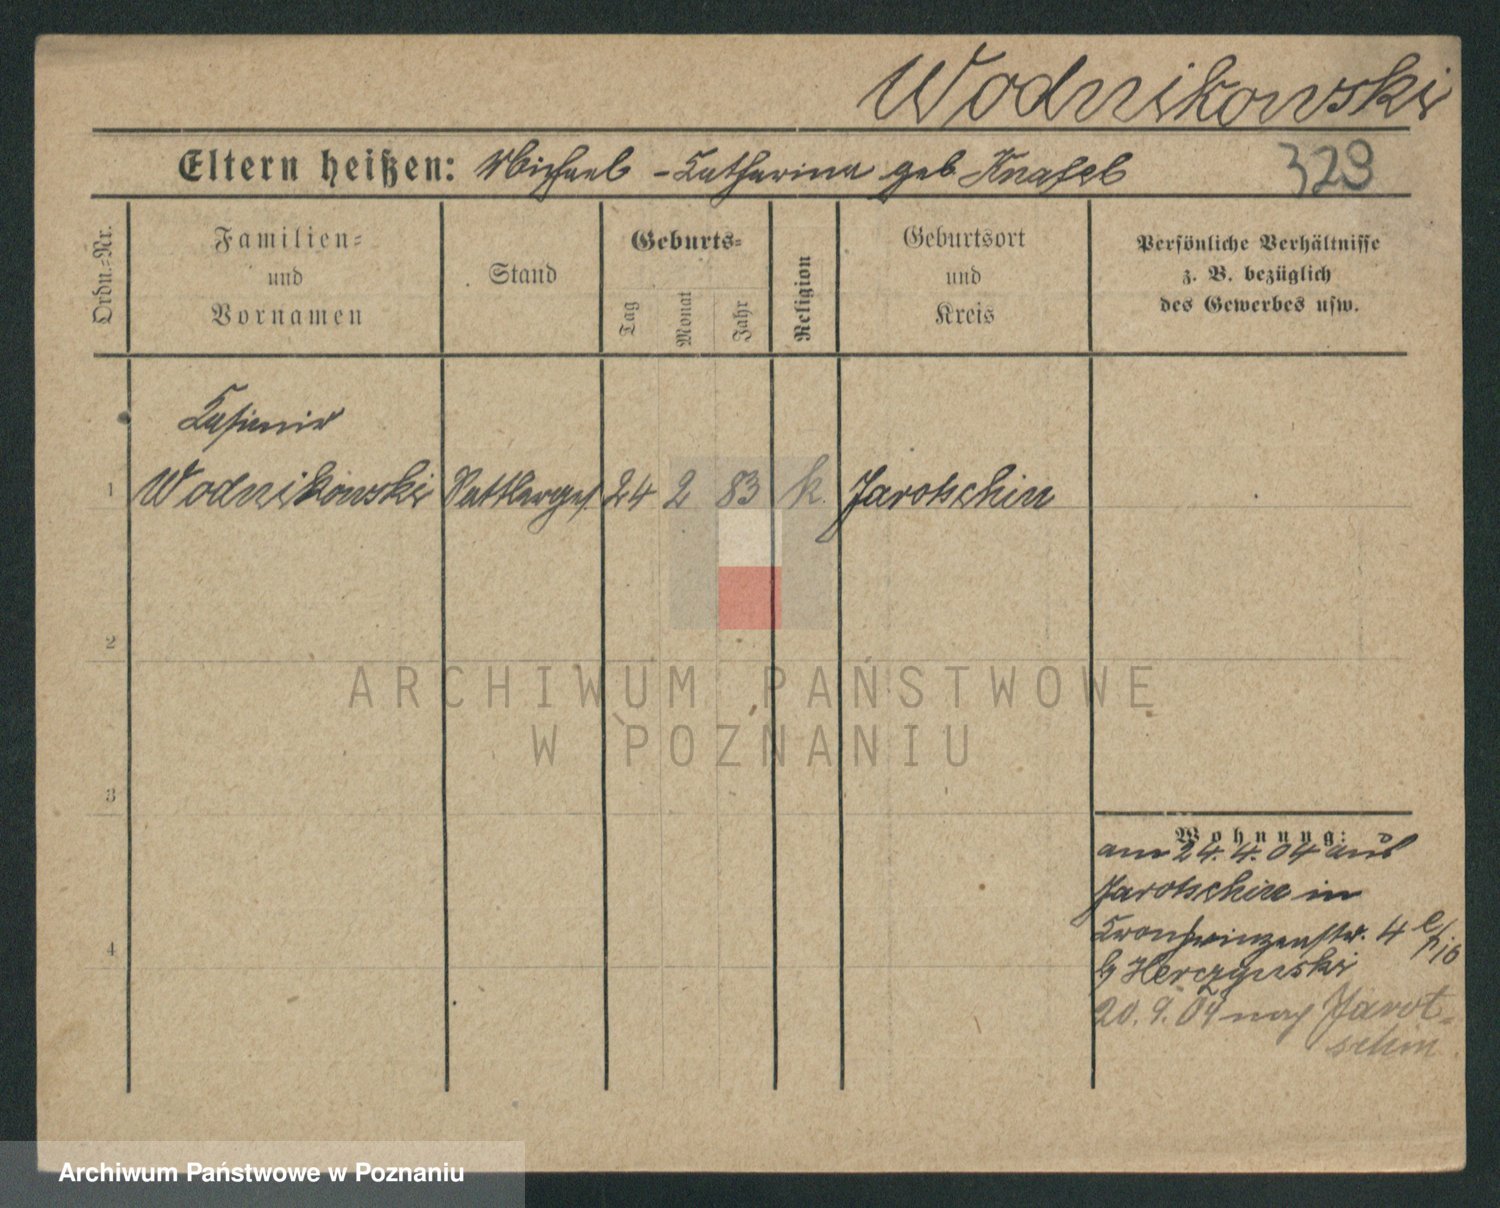 Wodnikowski
Eltern heißen: Michael - Katharina geb Knafel
329
Ordn.=Nr.
Familien=
und
Vornamen
Stand
Geburts=
Tag
Monat
Jahr
Religion
Geburtsort
und
Kreis
Persönliche Verhältnisse
z. B. bezüglich
des Gewerbes usw.
Kasimir
1 Wodnikowski Sattlerges 24 2 83 k. Jarotschin
2
ARCHIWUM PAŃSTWOWE
W POZNANIU
3
Wohnung:
am 24. 4. 04 aus
Jarotschin in
Kronprinzenstr. 4
4
b Herczynski
20. 9. 04 nach Jarot-
schin
Archiwum Państwowe w Poznaniu